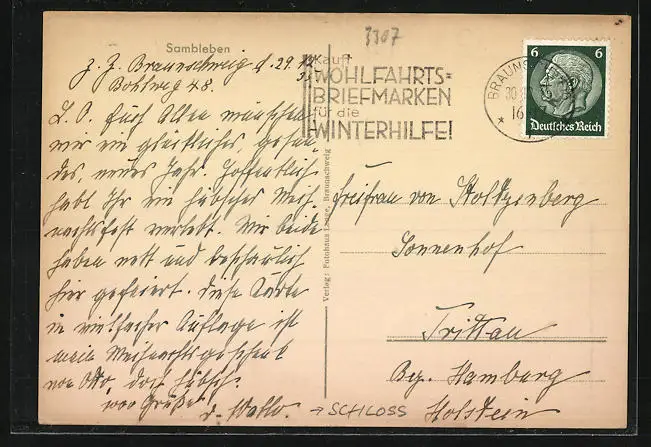 3307
Sambleben
z. Z. Braunschweig d. 29.
Bohlweg 48.
Kauft
WOHLFAHRTS=
BRIEFMARKEN
für die
WINTERHILFE!
BRAUNS
30
16
*
6 6
Deutsches Reich
L. O. Euch Allen wünschen
wir ein glückliches, gesun-
des, neues Jahr. Hoffentlich
habt Ihr ein hübsches Weih-
nachtsfest verlebt. Wir beide
haben nett und beschaulich
hier gefeiert. Diese Karte
in vielfacher Auflage ist
mein Weihnachtsgeschenk
von Otto, doch hübsch.
1000 Grüße
d.
Verlag: Fotohaus Lange, Braunschweig
Freifrau von Stoltzenberg
Sonnenhof
Trittau
Bz. Hamburg
Holstein
→ SCHLOSS